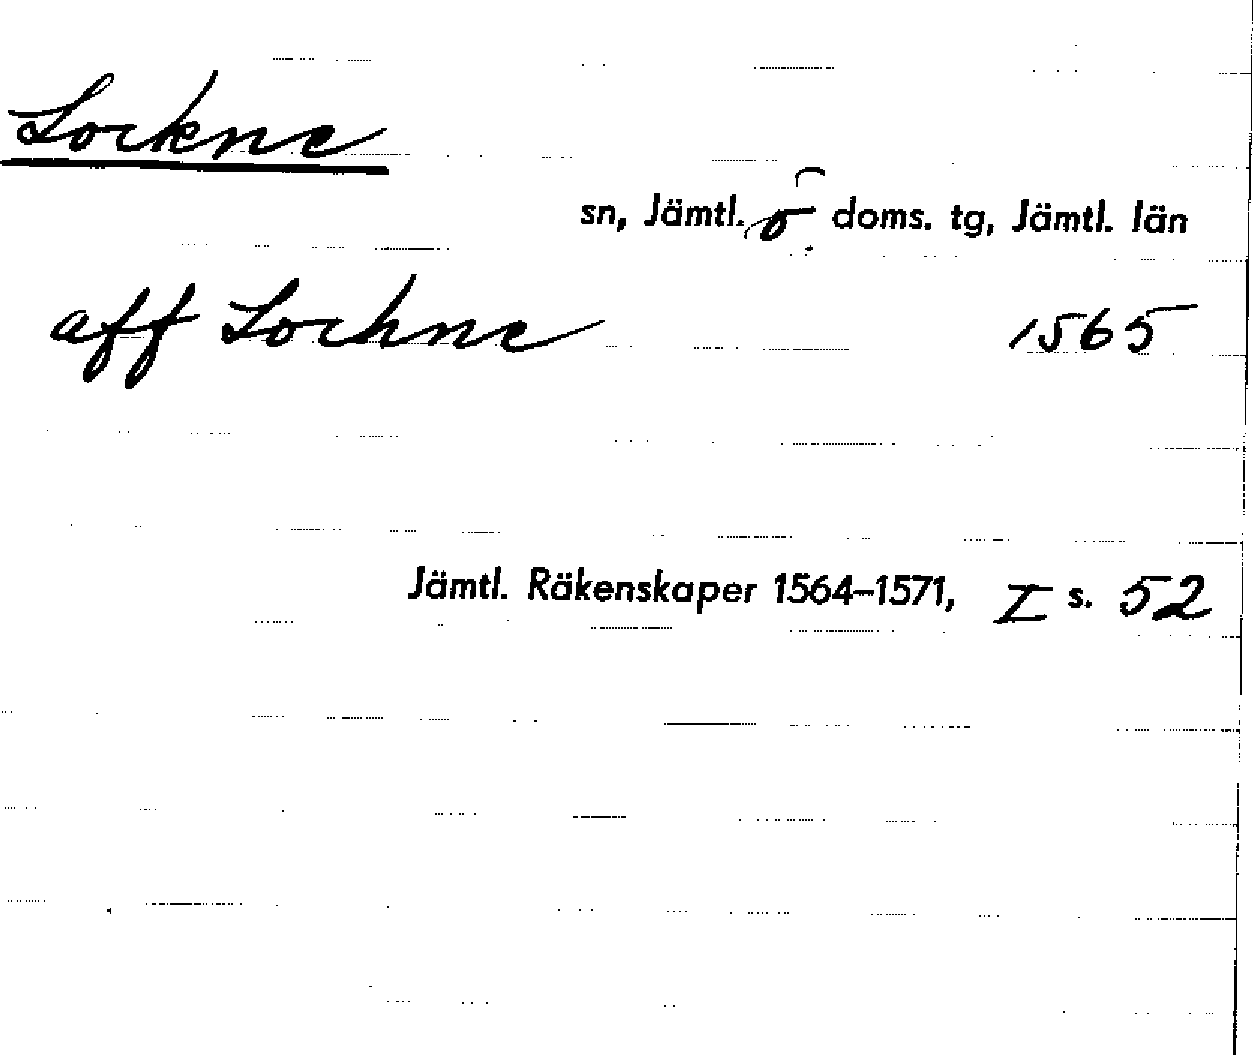 Lockne
sn, Jämtl. ö doms. tg, Jämtl. län
aff Lochne 1565
Jämtl. Räkenskaper 1564–1571, I s. 52